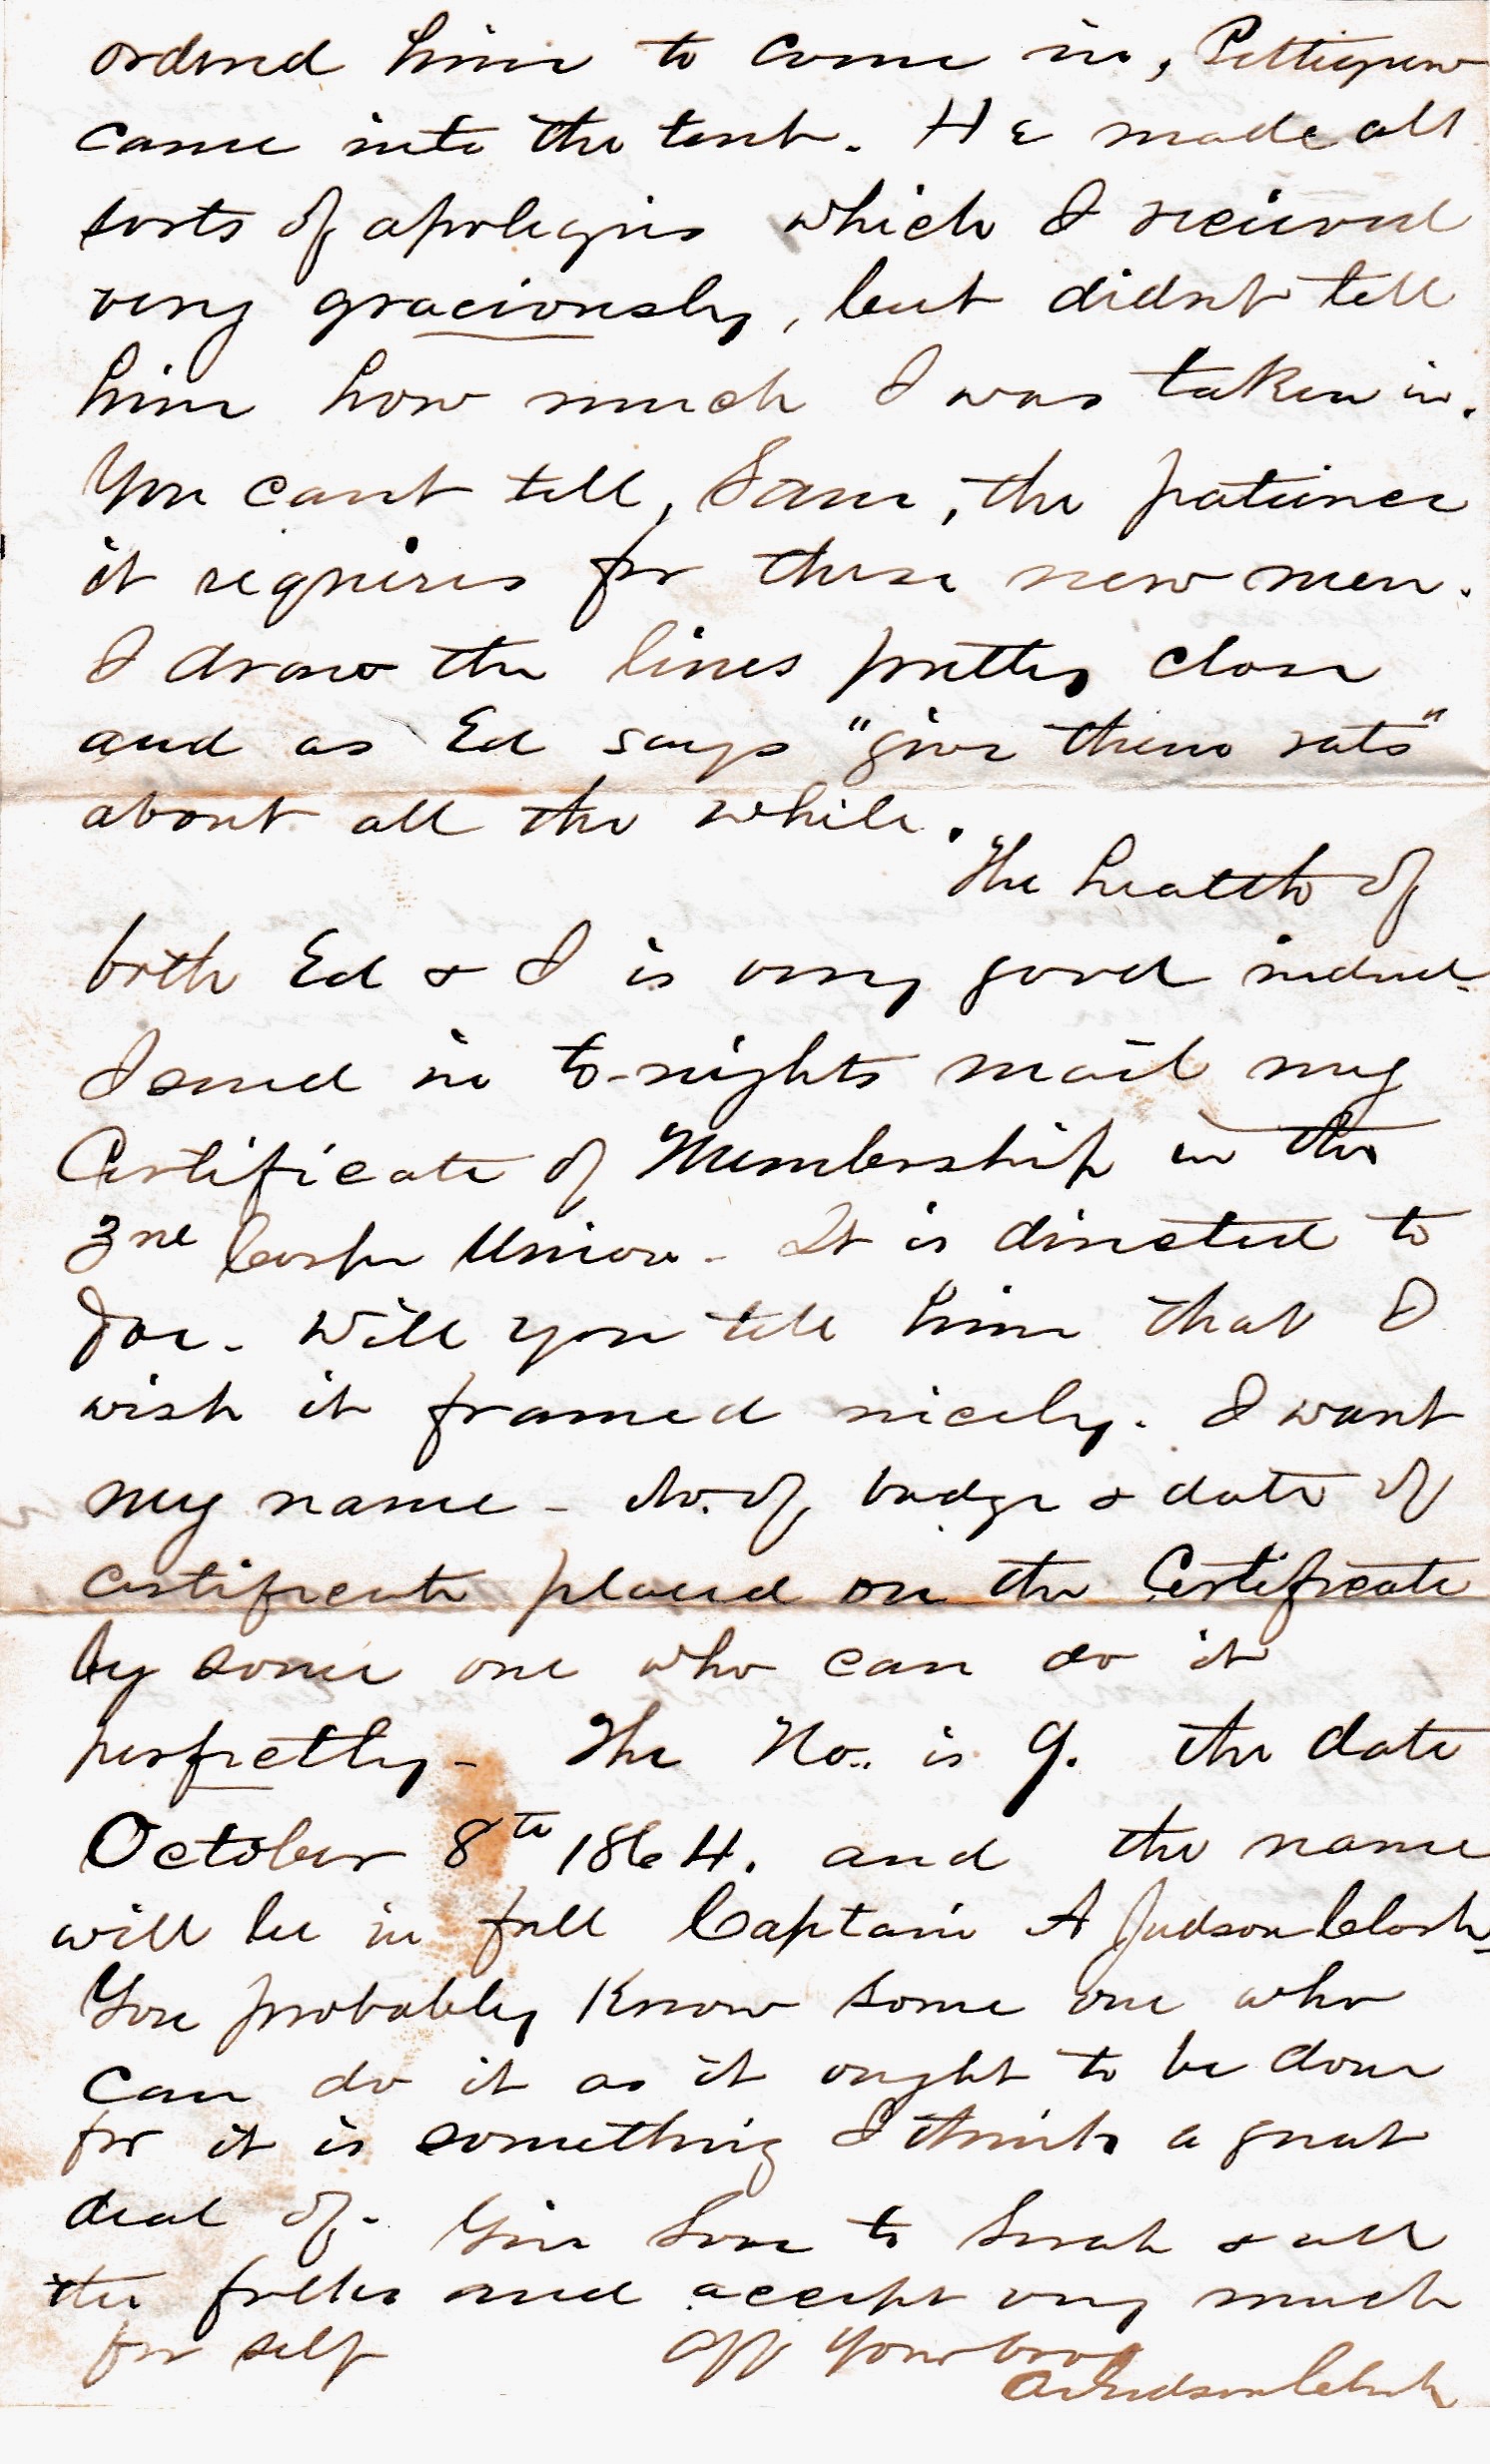 ordered him to come in, Pettigrew
came into the tent. He made all
sorts of apologies which I recieved
very graciously, but didnt tell
him how much I was taken in.
You cant tell, Sam, the patience
it requires for these new men.
I draw the lines pretty close
and as Ed says "give them rats"
about all the while.
The health of
both Ed & I is very good indeed.
I send in to-nights mail my
Certificate of Membership in the
3rd Corps Union - It is directed to
Joe. Will you tell him that I
wish it framed nicely. I want
my name - No. of badge & date of
certificate placed on the Certificate
by some one who can do it
perfectly - The No. is 9. the date
October 8th 1864. and the name
will be in full Captain A Judson Clark,
You probably Know some one who
can do it as it ought to be done
for it is something I think a great
deal of. Give Love to Sarah & all
the folks and accept very much
for self Aff Your bro
A Judson Clark